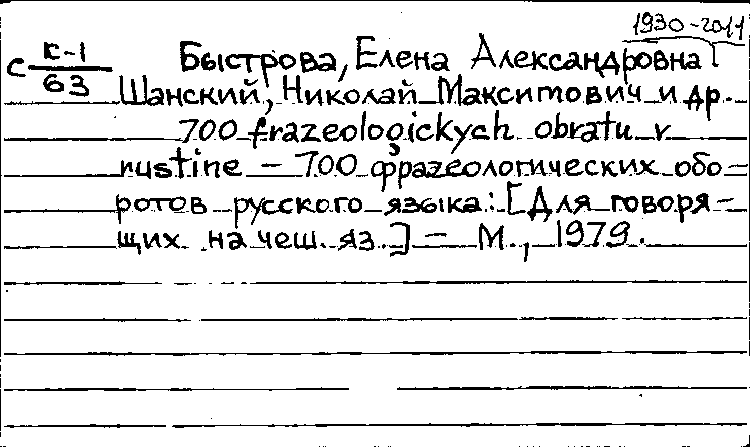 1930-2011
с К-1
63
Быстрова, Елена Александровна
Шанский, Николай Максимович и др.
700 frazeologickych obratu v
rustine – 700 фразеологических обо-
ротов русского языка: [Для говоря-
щих на чеш. яз.] – М., 1979.